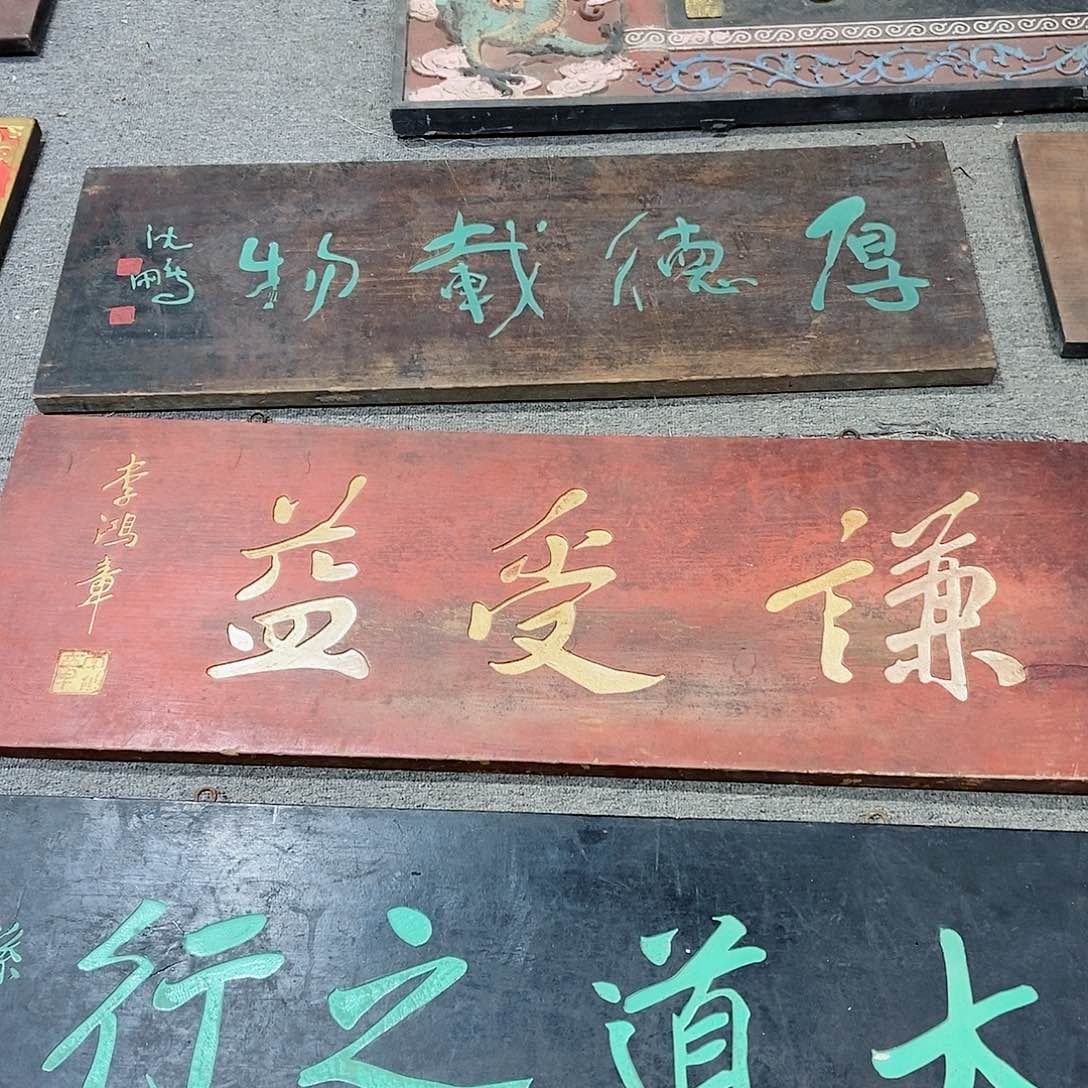 厚德載物
沈鹏
謙受益
李鴻章
大道之行